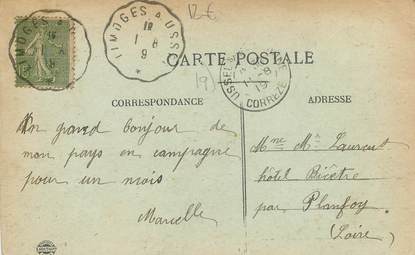 12€
LIMOGES A USSEL
1 - 8
19
CARTE POSTALE
19
USSEL
CORRÈZE
CORRESPONDANCE
ADRESSE
Un grand bonjour de
mon pays en campagne
pour un mois
Marcelle
Mme Mce Laurent
hôtel Bicêtre
par Planfoy
(Loire)